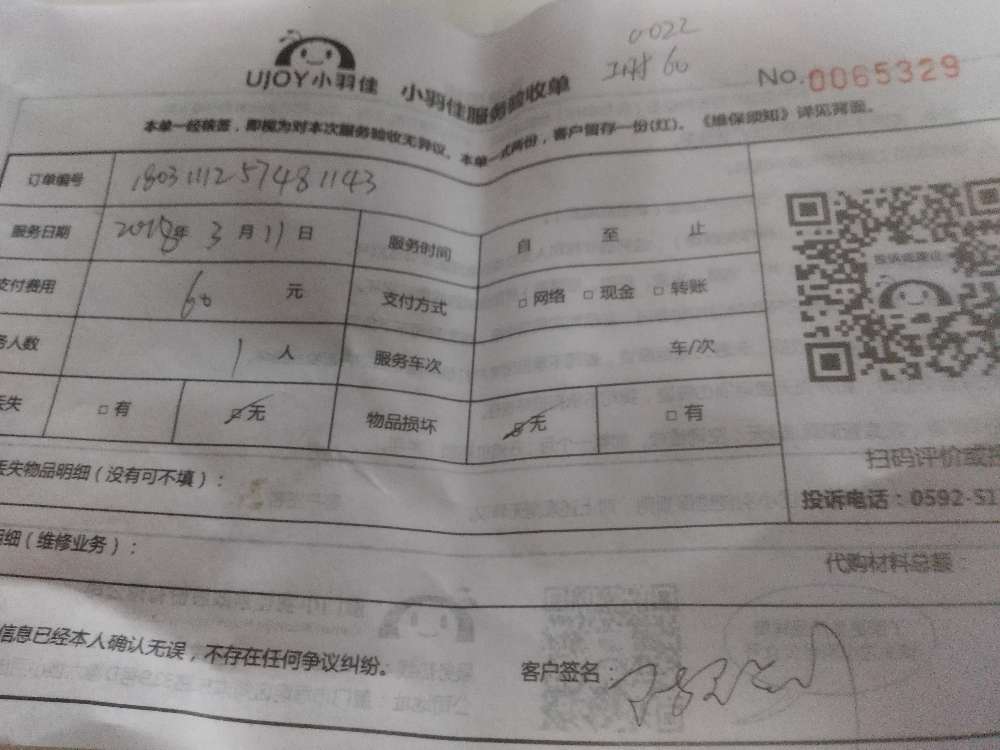 0022
工时 60
UJOY小羽佳 小羽佳服务验收单 No.0065329
本单一经核签，即视为对本次服务验收无异议。本单一式两份，客户留存一份(红)。《维保须知》详见背面。
订单编号 1803111257481143
服务日期 2018年 3 月 11 日 服务时间 自 至 止
支付费用 60 元 支付方式 □ 网络 □ 现金 □ 转账
务人数 1 人 服务车次 车/次
丢失 □ 有 □ 无 物品损坏 □ 无 □ 有
投诉或建议
扫码评价或投
丢失物品明细（没有可不填）：
投诉电话：0592-51
明细（维修业务）：
代购材料总额：
信息已经本人确认无误，不存在任何争议纠纷。
客户签名：